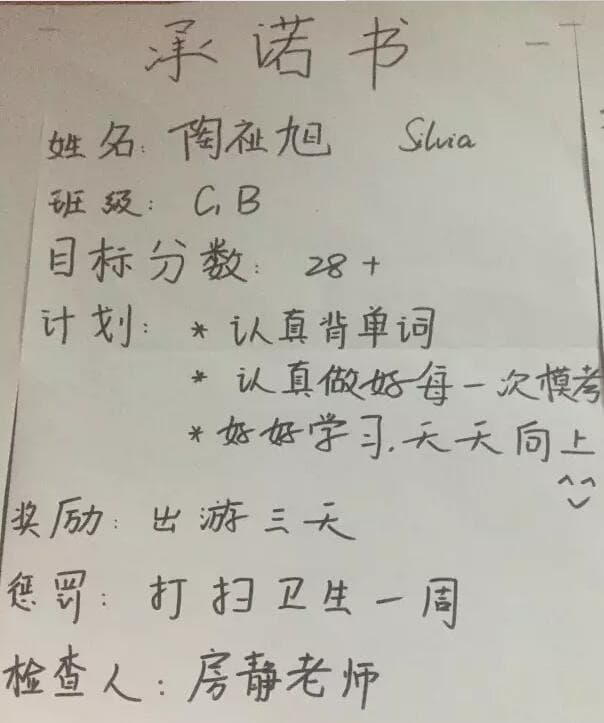 承诺书
姓名: 陶祉旭 Silvia
班级: C1B
目标分数: 28+
计划: * 认真背单词
* 认真做好每一次模考
* 好好学习,天天向上
^^
奖励: 出游三天
惩罚: 打扫卫生一周
检查人: 房静老师